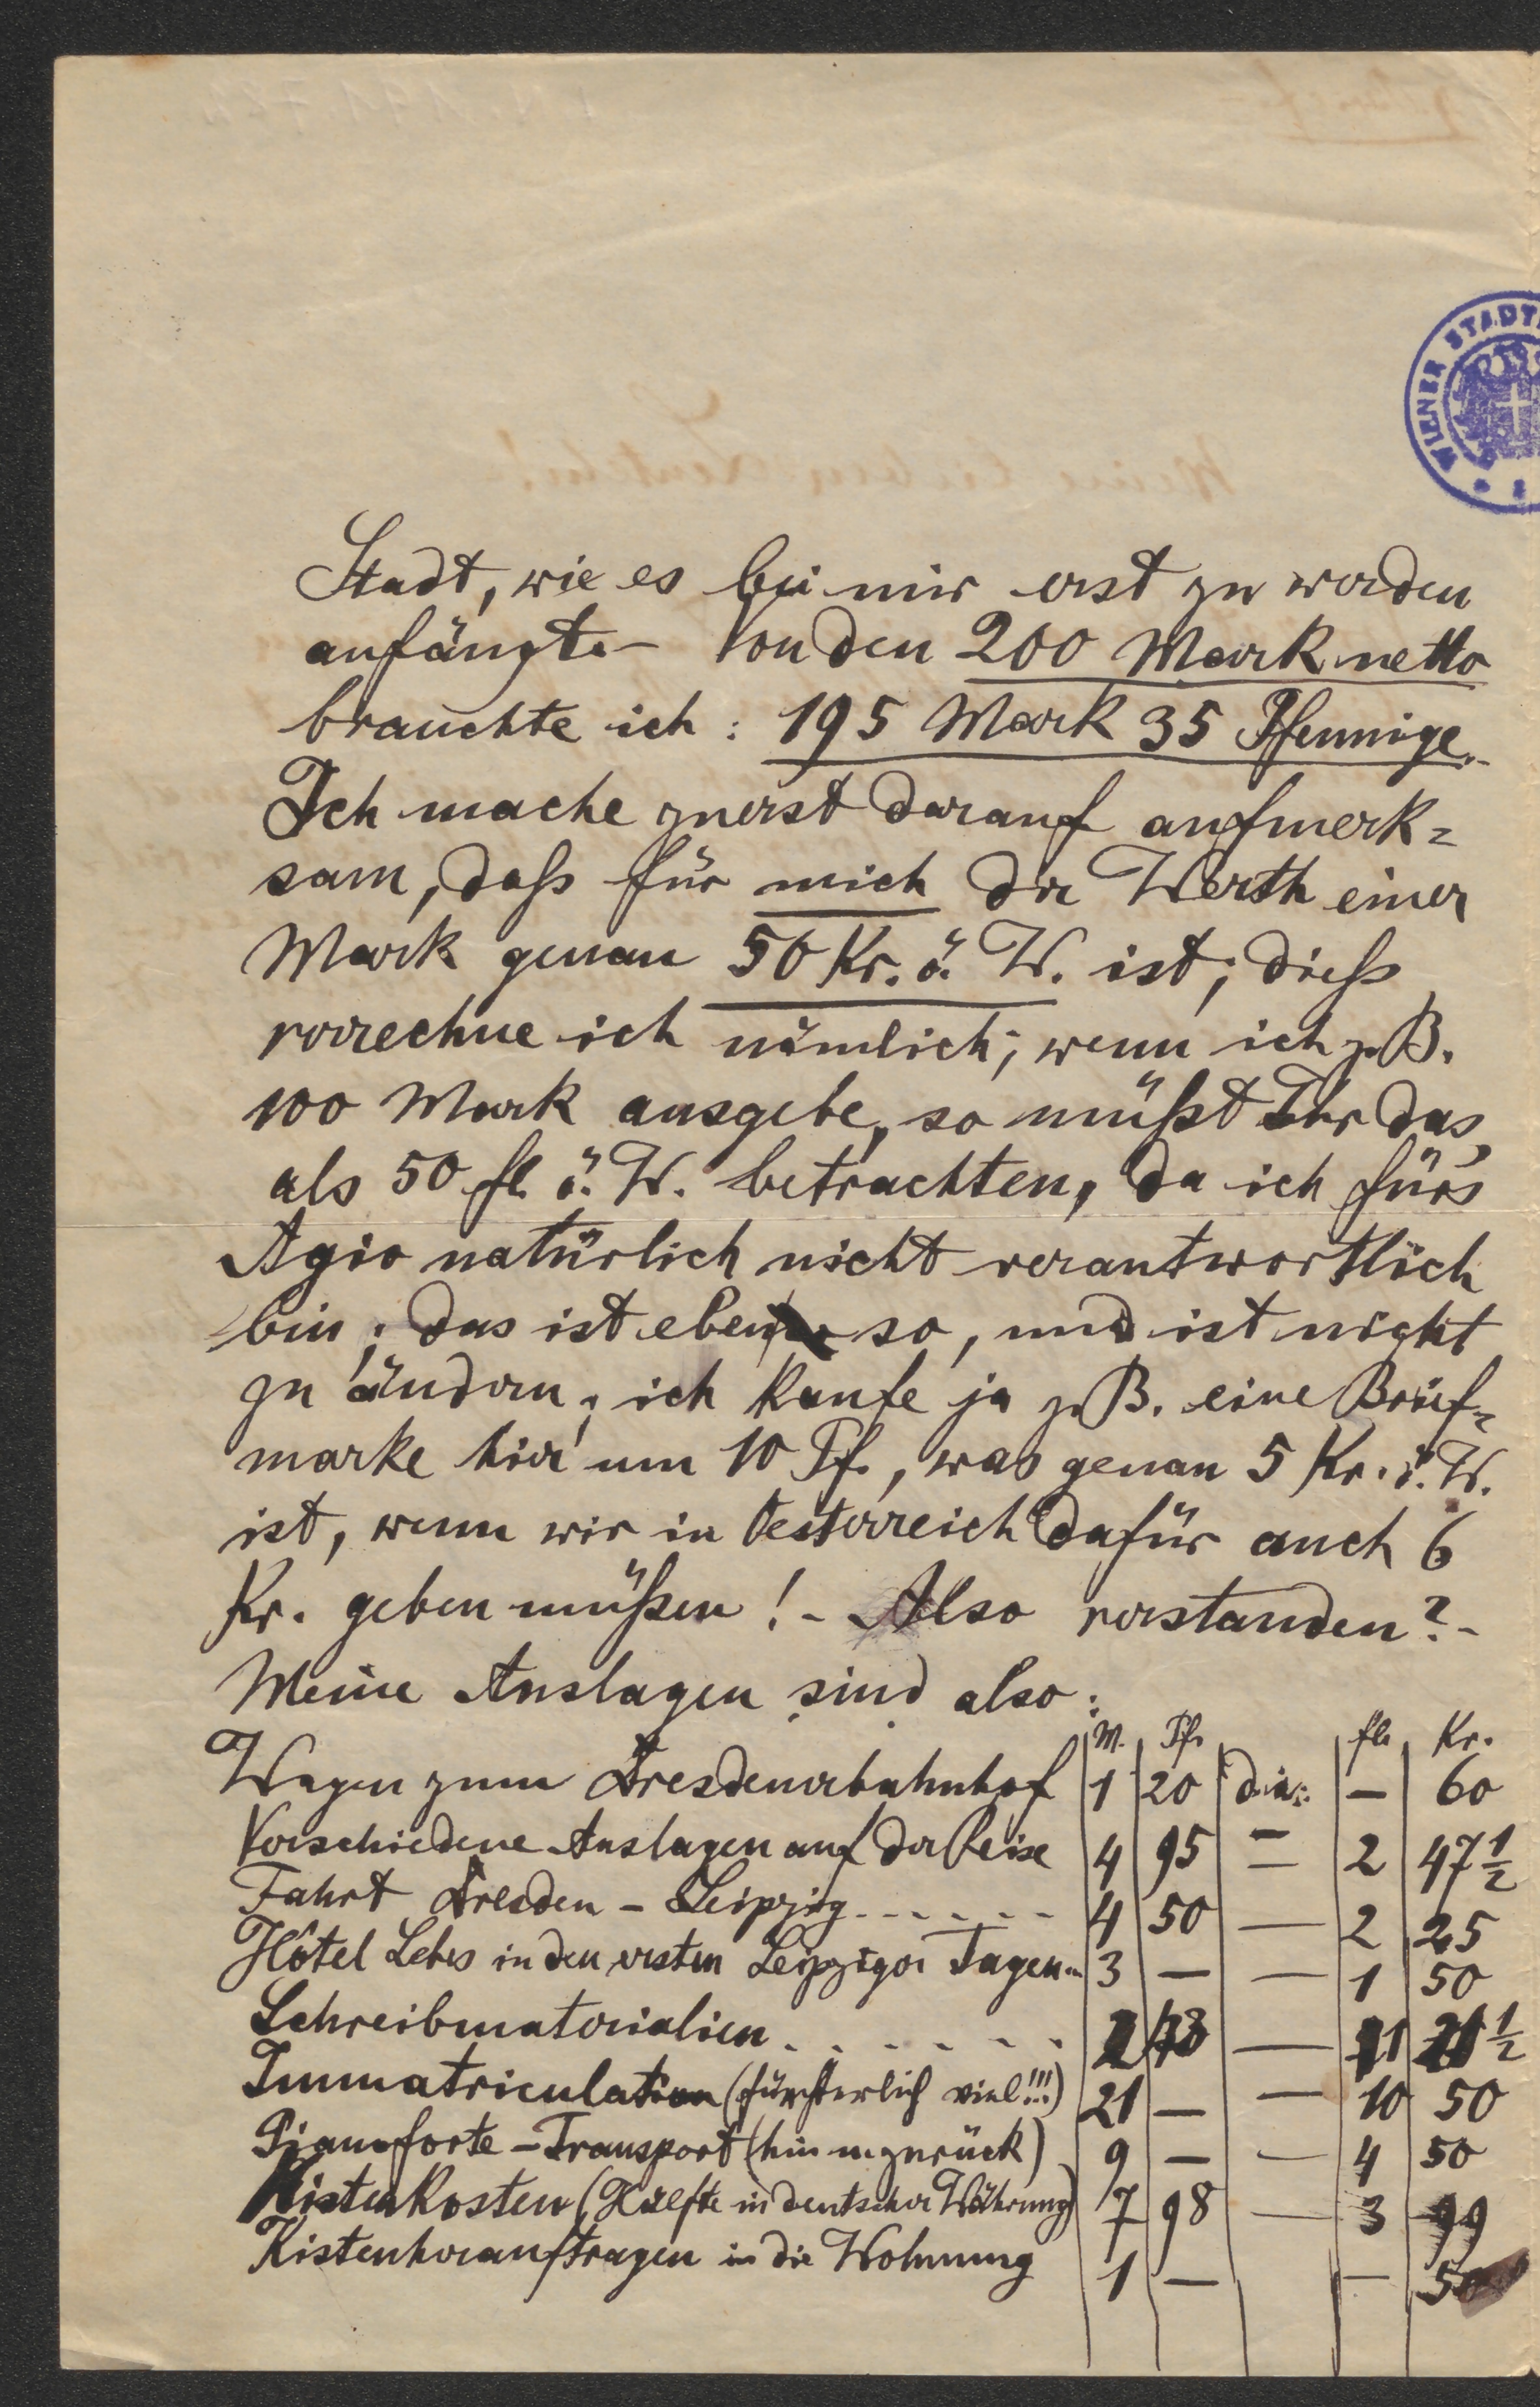 WIENER STADT
Stadt, wie es bei mir erst zu werden
anfängt. – Von den 200 Mark netto
brauchte ich : 195 Mark 35 Pfennige.
Ich mache zuerst darauf aufmerk=
sam, daß für mich der Werth einer
Mark genau 50 Kr. ö. W. ist; dieß
verrechne ich nämlich; wenn ich z. B.
100 Mark ausgebe, so müßt Ihr das
als 50 fl. ö. W. betrachten, da ich für's
Agio natürlich nicht verantwortlich
bin; das ist eben so, und ist nicht
zu ändern; ich kaufe ja z. B. eine Brief=
marke hier um 10 Pf., was genau 5 Kr. ö. W.
ist, wenn wir in Oesterreich dafür auch 6
Kr. geben müßen! – Also verstanden? –
Meine Auslagen sind also:
M. Pf. fl. Kr.
Wagen zum Dresdenerbahnhof 1 20 d.i.: — 60
Verschiedene Auslagen auf der Reise 4 95 — 2 47 1/2
Fahrt Dresden – Leipzig . . . . . . 4 50 — 2 25
Hôtel Lebes in den ersten Leipziger Tagen .. 3 — — 1 50
Schreibmaterialien . . . . . . . 2 43 — 1 21 1/2
Immatriculation (fürchterlich viel!!!) 21 — — 10 50
Pianoforte – Transport (hin u. zurück) 9 — — 4 50
Kistenkosten (Hälfte in deutscher Währung) 7 98 — 3 99
Kistenherauftragen in die Wohnung 1 — — 50